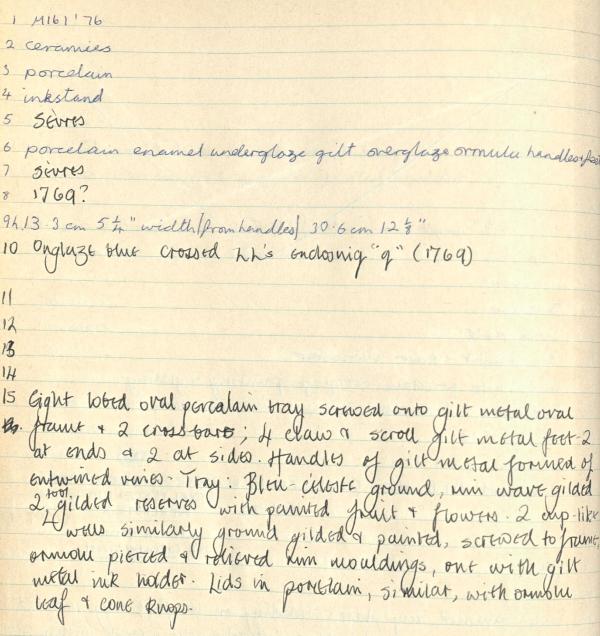 1 M161'76
2 ceramics
3 porcelain
4 inkstand
5 Sèvres
6 porcelain enamel underglaze gilt overglaze ormulu handles & feet
7 Sèvres
8 1769?
9 h.13.3 cm 5 1/4" width (from handles) 30.6 cm 12 1/8"
10 Onglaze blue crossed LL's enclosing "q" (1769)
11
12
13
14
15 Eight lobed oval porcelain tray screwed onto gilt metal oval
frame & 2 cross bars; 4 claw & scroll gilt metal feet-2
at ends & 2 at sides. Handles of gilt metal formed of
entwined vines. Tray: Bleu-Céleste ground, rim wave gilded
2 tool gilded reserves with painted fruit & flowers. 2 cup-like
wells similarly ground gilded & painted, screwed to frame,
ormolu pierced & relieved rim mouldings, one with gilt
metal ink holder. Lids in porcelain, similar, with ormolu
leaf & cone knops.